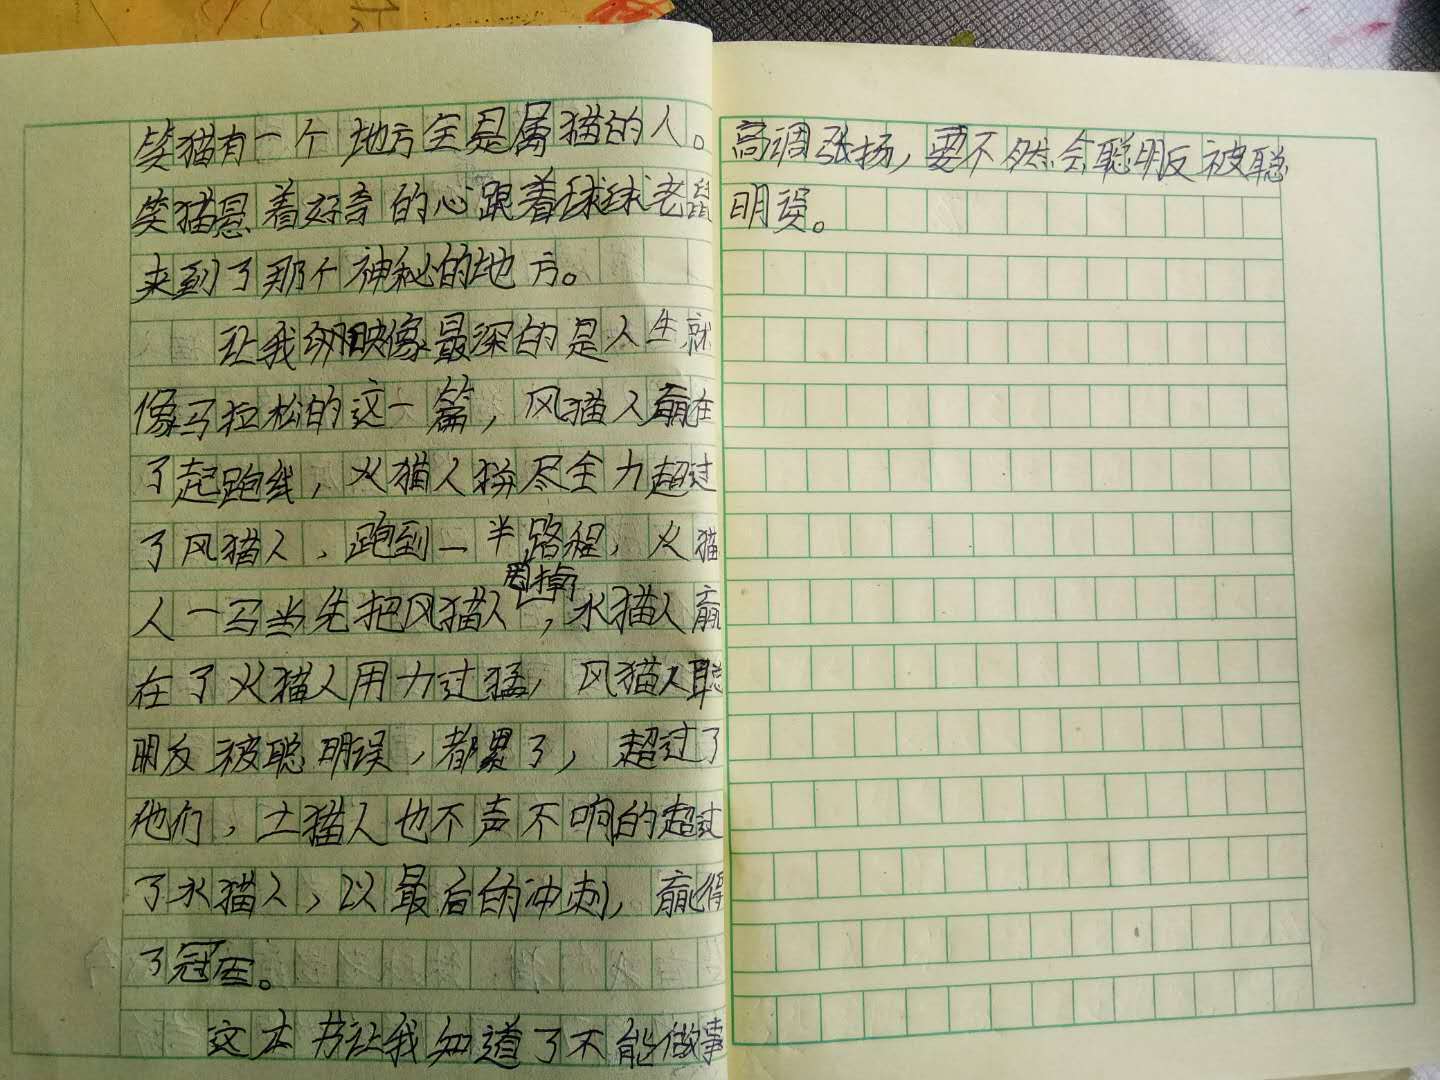 笑猫有一个地方全是属猫的人。
笑猫恳着好奇的心跟着球球老鼠
来到了那个神秘的地方。
让我的映像最深的是人生就
像马拉松的这一篇，风猫人赢在
了起跑线，火猫人拼尽全力超过
了风猫人，跑到一半路程，火猫
甩掉
人一马当先把风猫人，水猫人赢
在了火猫人用力过猛，风猫人聪
明反被聪明误，都累了，超过了
他们，土猫人也不声不响的超过
了水猫人，以最后的冲刺，赢得
了冠军。
这本书让我知道了不能做事
高调张扬，要不然会聪明反被聪
明误。